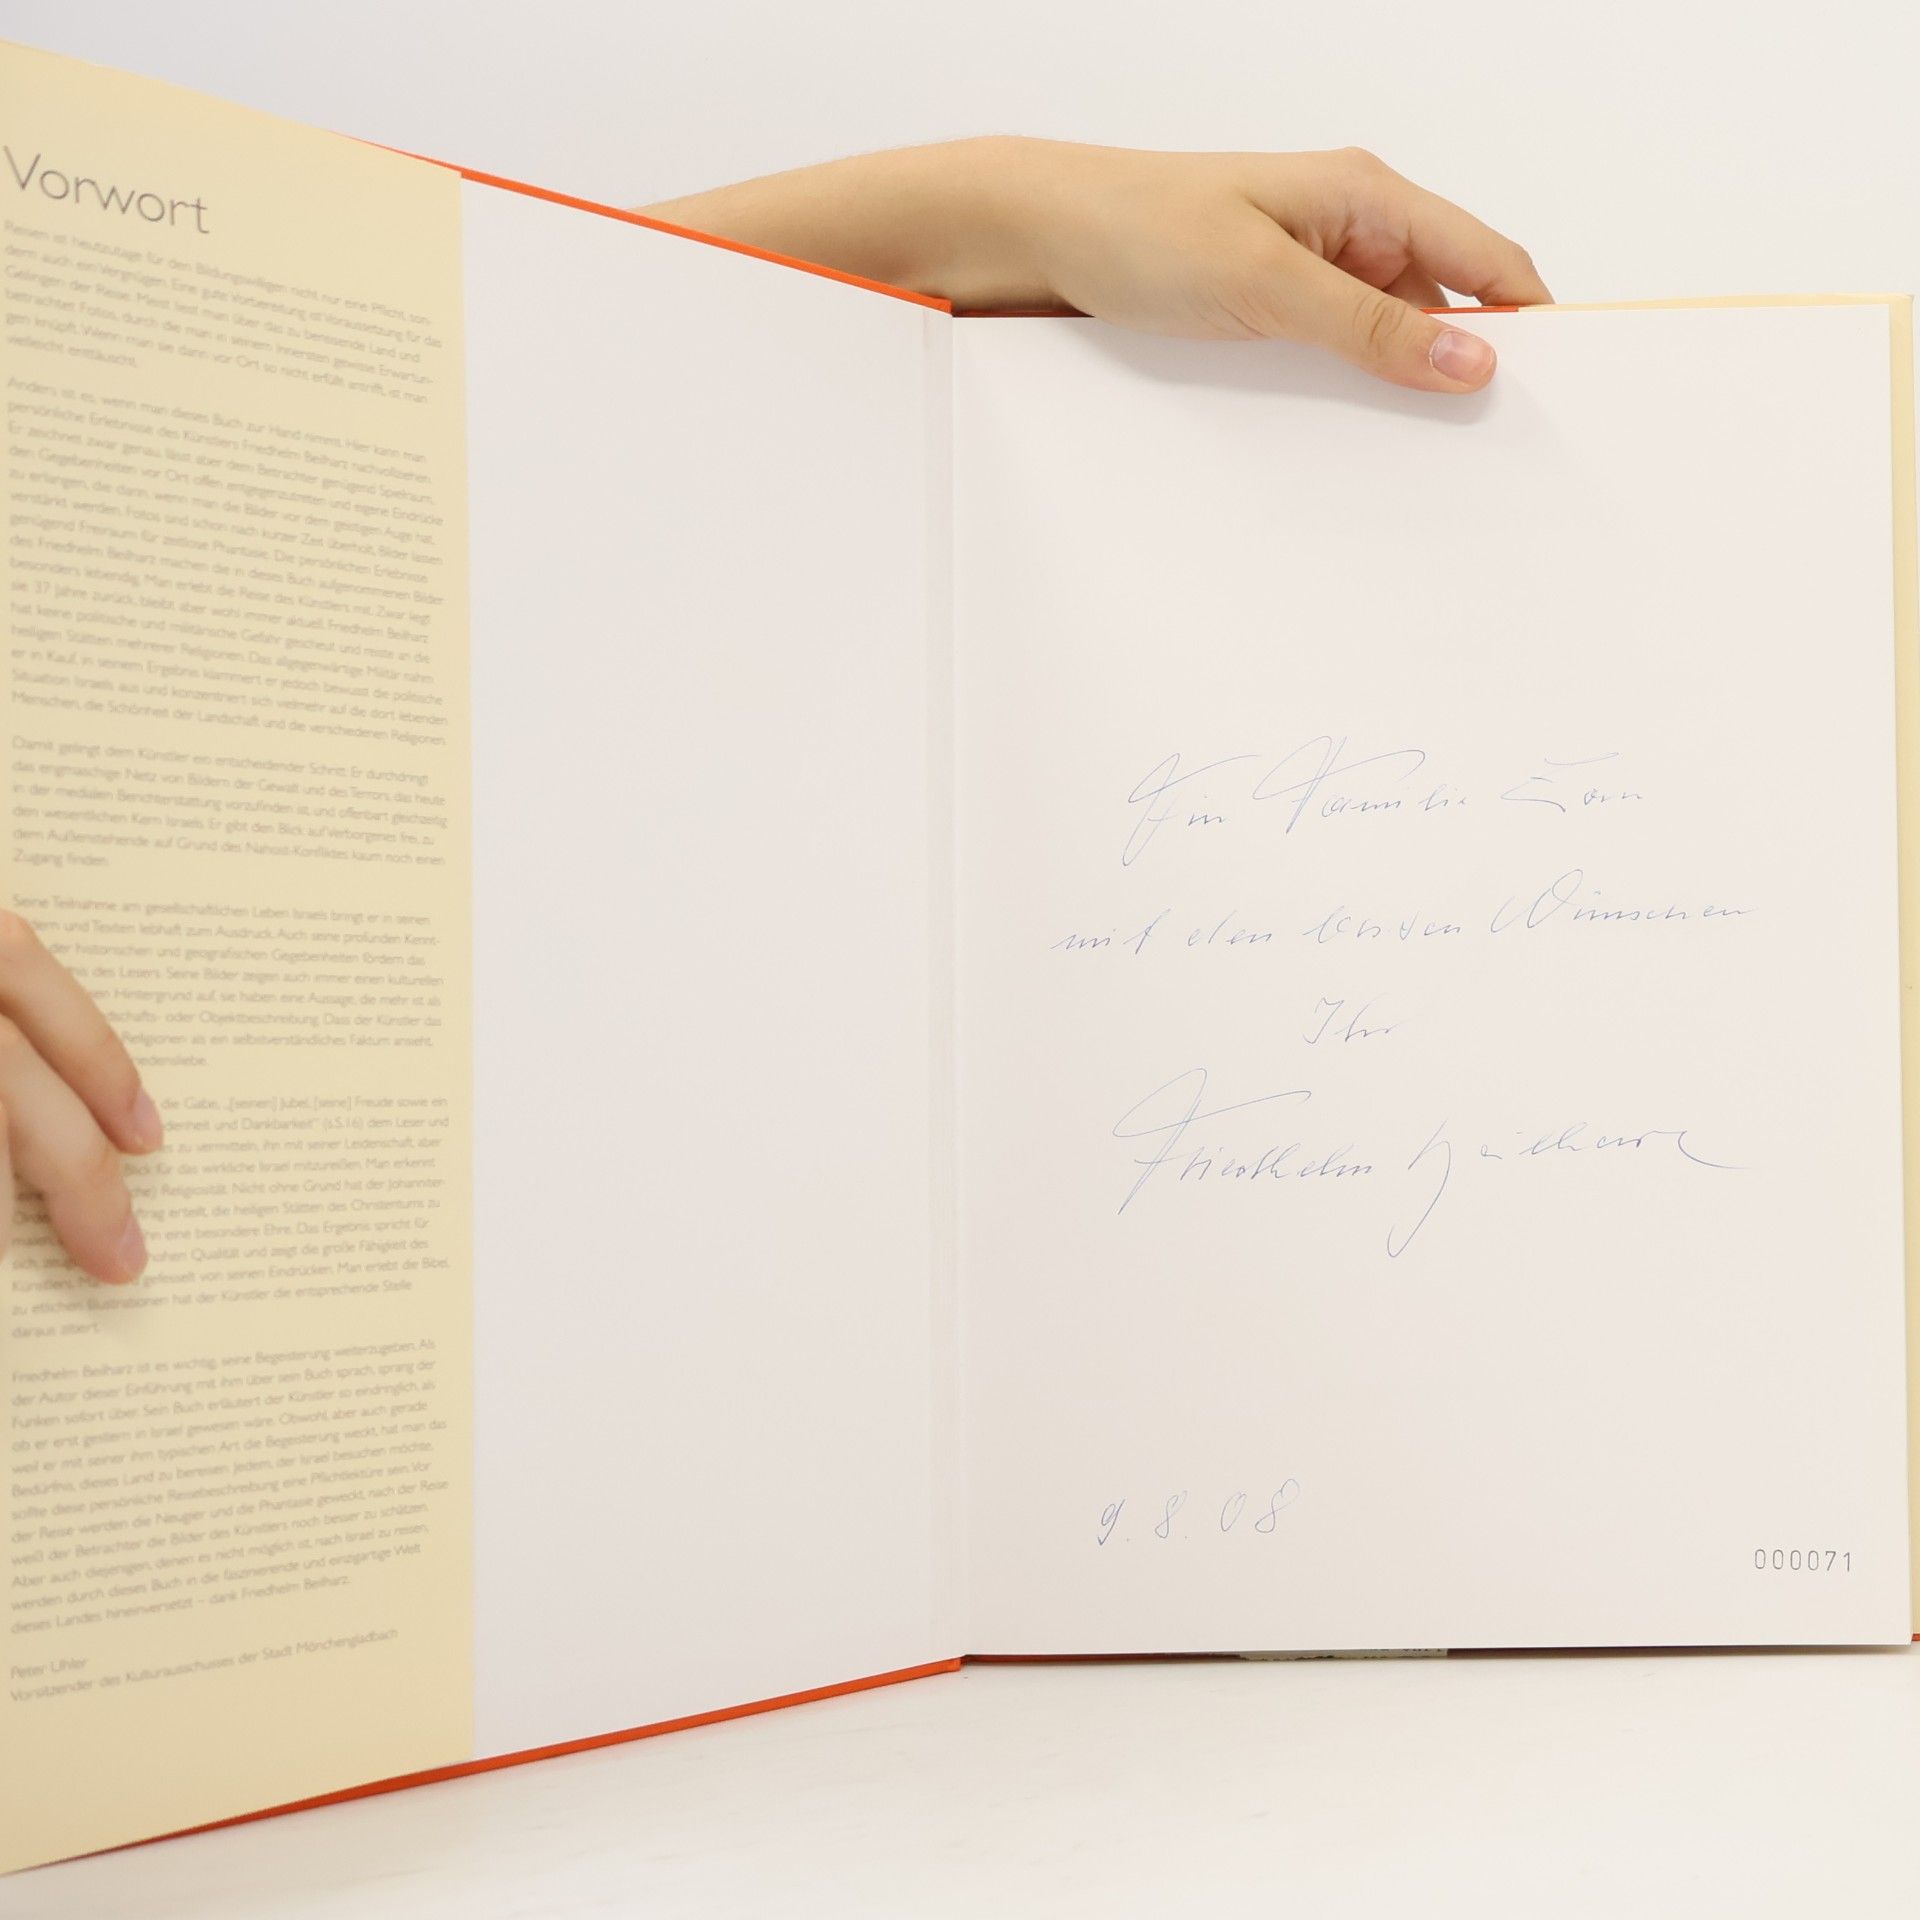 Vorwort
Reisen ist heutzutage für den Bildungswilligen nicht nur eine Pflicht, son-
dern auch ein Vergnügen. Eine gute Vorbereitung ist Voraussetzung für das
Gelingen der Reise. Meist liest man über das zu bereisende Land und
betrachtet Fotos, durch die man in seinem Innersten gewisse Erwartun-
gen knüpft. Wenn man sie dann vor Ort so nicht erfüllt antrifft, ist man
vielleicht enttäuscht.
Anders ist es, wenn man dieses Buch zur Hand nimmt. Hier kann man
persönliche Erlebnisse des Künstlers Friedhelm Beilharz nachvollziehen.
Er zeichnet zwar genau, lässt aber dem Betrachter genügend Spielraum,
den Gegebenheiten vor Ort offen entgegenzutreten und eigene Eindrücke
zu erlangen, die dann, wenn man die Bilder vor dem geistigen Auge hat,
verstärkt werden. Fotos sind schon nach kurzer Zeit überholt, Bilder lassen
genügend Freiraum für zeitlose Phantasie. Die persönlichen Erlebnisse
des Friedhelm Beilharz machen die in dieses Buch aufgenommenen Bilder
besonders lebendig. Man erlebt die Reise des Künstlers mit. Zwar liegt
sie 37 Jahre zurück, bleibt aber wohl immer aktuell. Friedhelm Beilharz
hat keine politische und militärische Gefahr gescheut und reiste an die
heiligen Stätten mehrerer Religionen. Das allgegenwärtige Militär nahm
er in Kauf, in seinem Ergebnis klammert er jedoch bewusst die politische
Situation Israels aus und konzentriert sich vielmehr auf die dort lebenden
Menschen, die Schönheit der Landschaft und die verschiedenen Religionen.
Damit gelingt dem Künstler ein entscheidender Schritt: Er durchdringt
das engmaschige Netz von Bildern der Gewalt und des Terrors, das heute
in der medialen Berichterstattung vorzufinden ist, und offenbart gleichzeitig
den wesentlichen Kern Israels. Er gibt den Blick auf Verborgenes frei, zu
dem Außenstehende auf Grund des Nahost-Konfliktes kaum noch einen
Zugang finden.
Seine Teilnahme am gesellschaftlichen Leben Israels bringt er in seinen
dern und Texten lebhaft zum Ausdruck. Auch seine profunden Kennt-
der historischen und geografischen Gegebenheiten fördern das
nis des Lesers. Seine Bilder zeigen auch immer einen kulturellen
en Hintergrund auf, sie haben eine Aussage, die mehr ist als
dschafts- oder Objektbeschreibung. Dass der Künstler das
Religionen als ein selbstverständliches Faktum ansieht,
iedensliebe.
die Gabe, „[seinen] Jubel, [seine] Freude sowie ein
denheit und Dankbarkeit“ (s.S.16) dem Leser und
zu vermitteln, ihn mit seiner Leidenschaft, aber
Blick für das wirkliche Israel mitzureißen. Man erkennt
che) Religiosität. Nicht ohne Grund hat der Johanniter-
Orde ftrag erteilt, die heiligen Stätten des Christentums zu
malen, hn eine besondere Ehre. Das Ergebnis spricht für
sich, zeugt hohen Qualität und zeigt die große Fähigkeit des
Künstlers. Ma gefesselt von seinen Eindrücken. Man erlebt die Bibel,
zu etlichen Illustrationen hat der Künstler die entsprechende Stelle
daraus zitiert.
Friedhelm Beilharz ist es wichtig, seine Begeisterung weiterzugeben. Als
der Autor dieser Einführung mit ihm über sein Buch sprach, sprang der
Funken sofort über. Sein Buch erläutert der Künstler so eindringlich, als
ob er erst gestern in Israel gewesen wäre. Obwohl, aber auch gerade
weil er mit seiner ihm typischen Art die Begeisterung weckt, hat man das
Bedürfnis, dieses Land zu bereisen. Jedem, der Israel besuchen möchte,
sollte diese persönliche Reisebeschreibung eine Pflichtlektüre sein. Vor
der Reise werden die Neugier und die Phantasie geweckt, nach der Reise
weiß der Betrachter die Bilder des Künstlers noch besser zu schätzen.
Aber auch diejenigen, denen es nicht möglich ist, nach Israel zu reisen,
werden durch dieses Buch in die faszinierende und einzigartige Welt
dieses Landes hineinversetzt – dank Friedhelm Beilharz.
Peter Uhler
Vorsitzender des Kulturausschusses der Stadt Mönchengladbach
Für Familie Zorn
mit den besten Wünschen
Ihr
Friedhelm Beilharz
9.8.08
000071